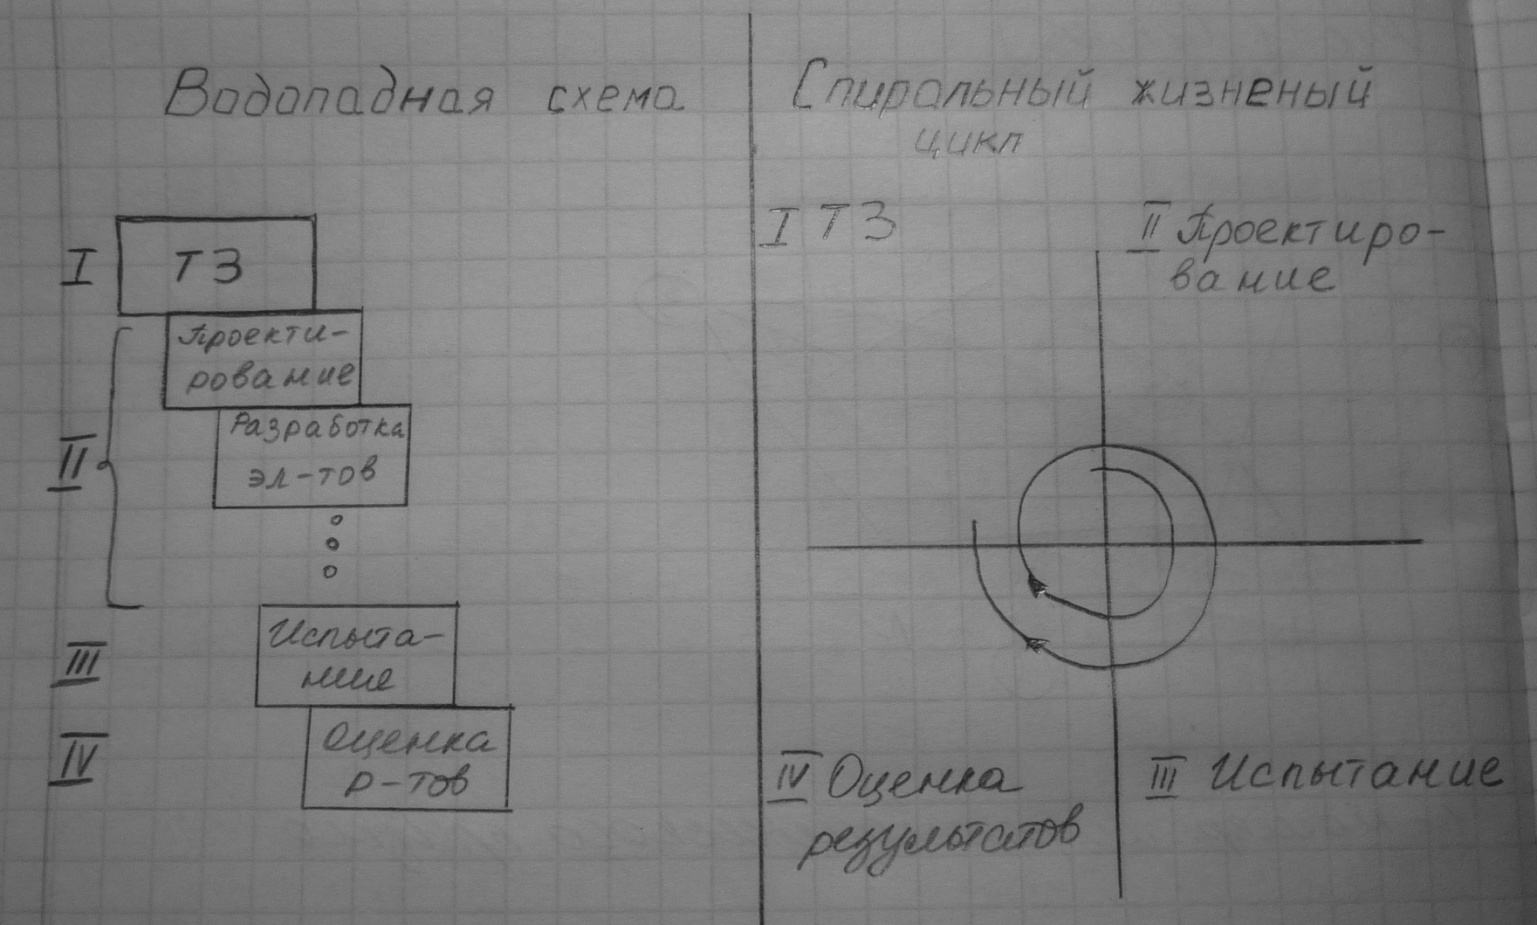 Водопадная схема
I
ТЗ
II
Проекти-
рование
Разработка
эл-тов
III
Испыта-
ние
IV
Оценка
р-тов
Спиральный жизненый
цикл
I ТЗ
II Проектиро-
вание
IV Оценка
результатов
III Испытание